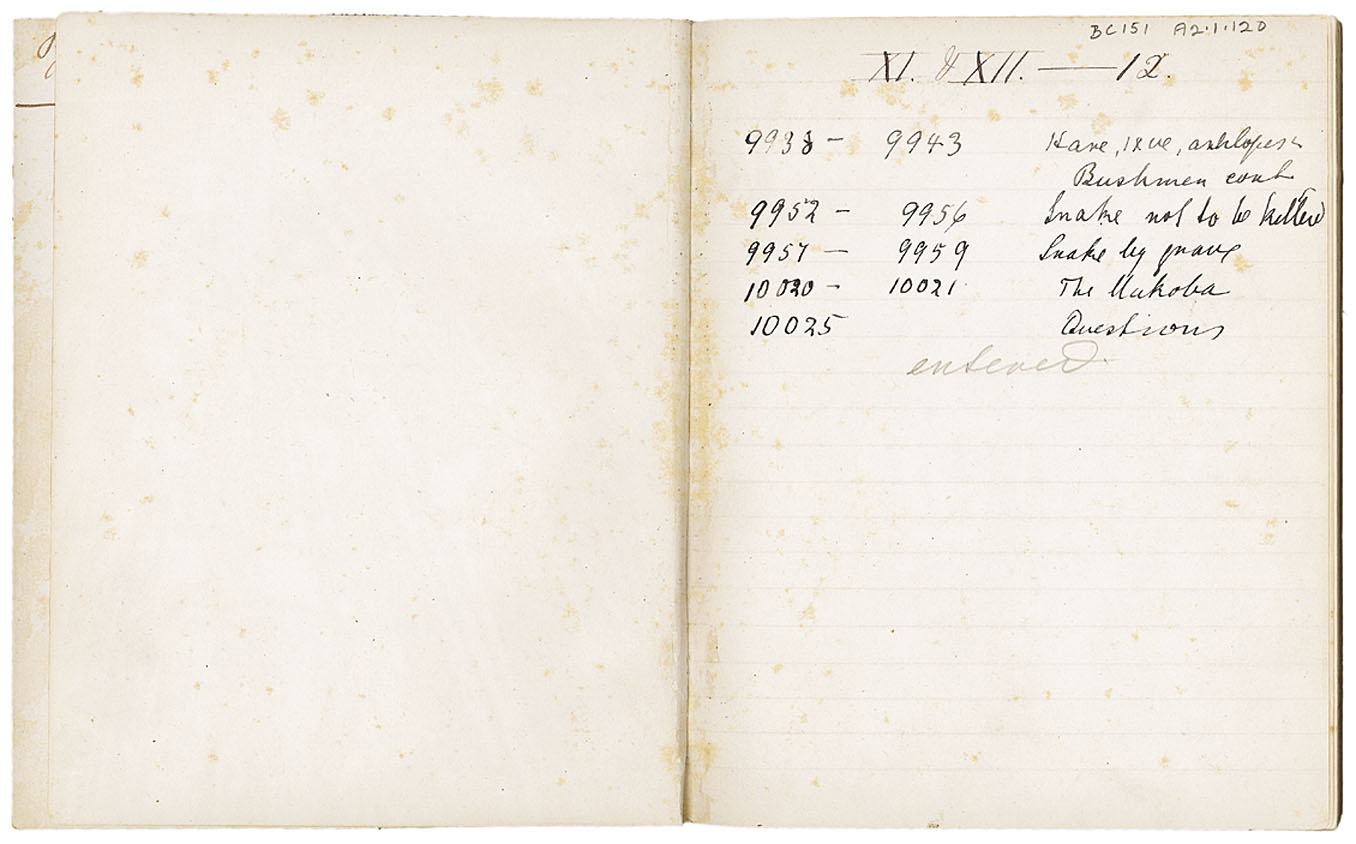 BC151 A2.1.120
XI. & XII. — 12.
9938 - 9943 Hare, antelopes &
Bushmen cont
9952 - 9956 Snake not to be killed
9957 - 9959 Snake by grave
10020 - 10021 The Mukoba
10025 Questions
entered.